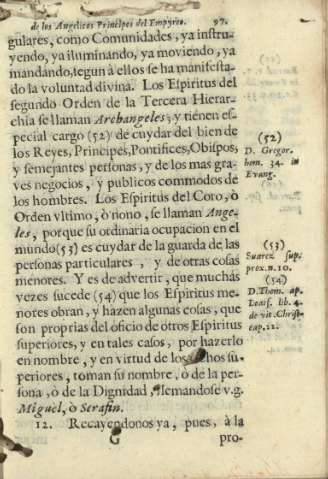 de los Angelicos Principes del Empyreo. 97.
gulares, como Comunidades, ya instru-
yendo, ya iluminando, ya moviendo, ya
mandando, segun à ellos se ha manifesta-
do la voluntad divina. Los Espiritus del
segundo Orden de la Tercera Hierar-
chia se llaman Archangeles; y tienen es-
pecial cargo (52) de cuydar del bien de
los Reyes, Principes, Pontifices, Obispos,
y semejantes personas, y de los mas gra-
ves negocios, y publicos commodos de
los hombres. Los Espiritus del Coro, ò
Orden vltimo, ò nono, se llaman Ange-
les, porque su ordinaria ocupacion en el
mundo (53) es cuydar de la guarda de las
personas particulares, y de otras cosas
menores. Y es de advertir, que muchas
vezes sucede (54) que los Espiritus me-
nores obran, y hazen algunas cosas, que
son proprias del oficio de otros Espiritus
superiores, y en tales casos, por hazerlo
en nombre, y en virtud de los dichos su-
periores, toman su nombre, ò de la per-
sona, ò de la Dignidad, llemandose v.g.
Miguel, ò Serafin.
12. Recayendonos ya, pues, à la
G pro-
(52)
D. Gregor.
hom. 34. in
Evang.
(53)
Suarez sup.
prox. n. 10.
(54)
D. Thom. ap.
Lib. 4.
de vit. Christ.
cap. 12.